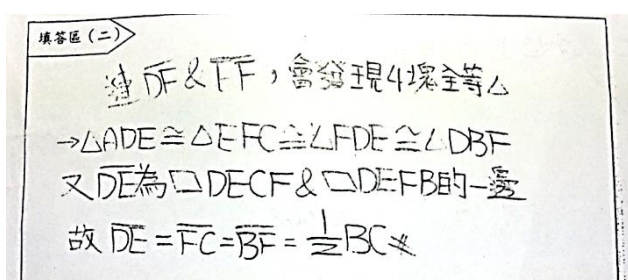 填答區(二)
連 DF & EF，會發現4塊全等△
→△ADE≅△EFC≅△FDE≅△DBF
又DE為▱DECF&▱DEFB的一邊
故 DE=FC=BF=1/2BC※